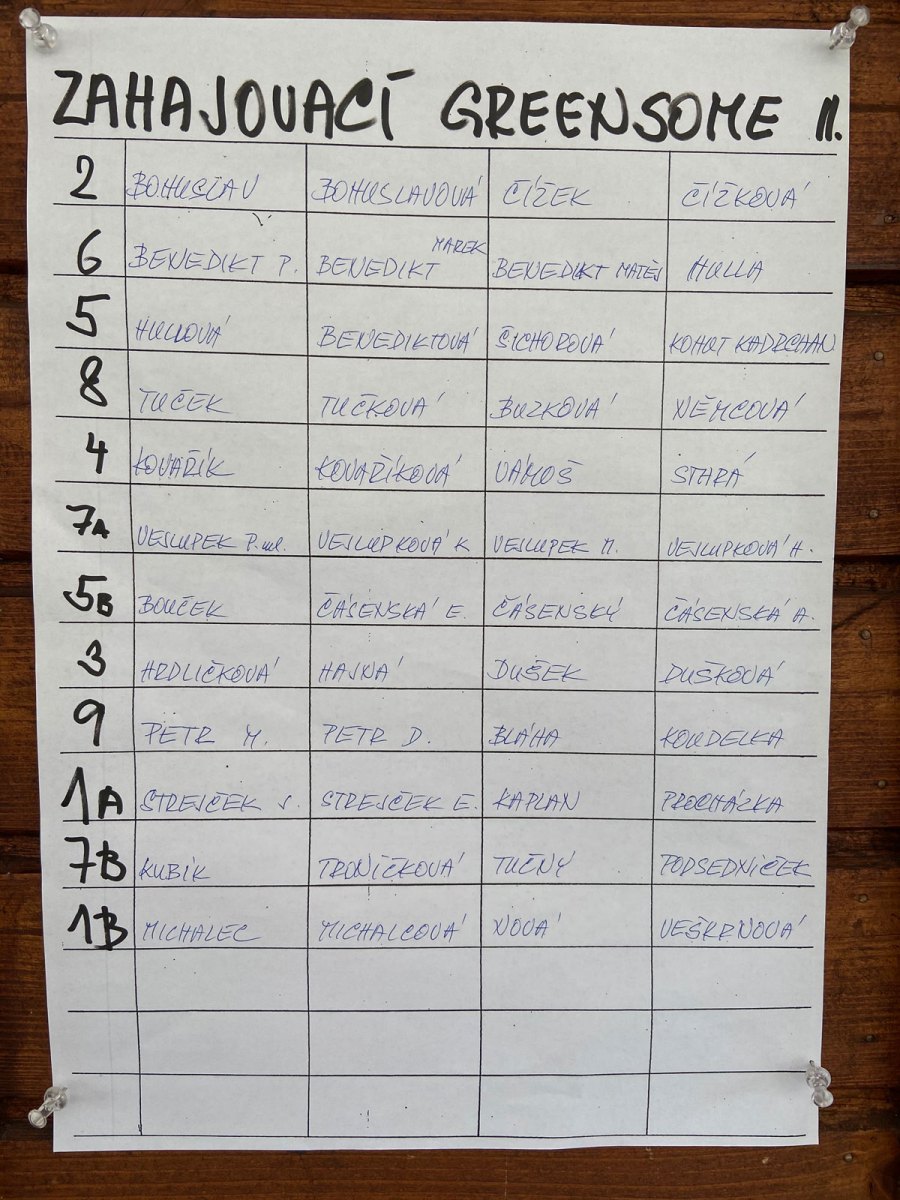 ZAHAJOVACÍ GREENSOME II.
2 BOHUSLAV BOHUSLAVOVÁ ČÍŽEK ČÍŽKOVÁ
6 BENEDIKT P. BENEDIKT MAREK BENEDIKT MATĚJ HULLA
5 HULLOVÁ BENEDIKTOVÁ ŠICHOROVÁ KOHUT KADRCHAN
8 TUČEK TUČKOVÁ BUZKOVÁ NĚMCOVÁ
4 KOVAŘÍK KOVAŘÍKOVÁ VÁMOŠ STARÁ
7A VEJLUPEK P. ml. VEJLUPKOVÁ K VEJLUPEK M. VEJLUPKOVÁ H.
5B BOUČEK ČÁSENSKÁ E. ČÁSENSKÝ ČÁSENSKÁ A.
3 HRDLIČKOVÁ HAJNÁ DUŠEK DUŠKOVÁ
9 PETR M. PETR D. BLÁHA KOUDELKA
1A STREJČEK J. STREJČEK E. KAPLAN PROCHÁZKA
7B KUBÍK TRONÍČKOVÁ TUČNÝ PODSEDNÍČEK
1B MICHALEC MICHALCOVÁ NOVÁ VEŠKRNOVÁ